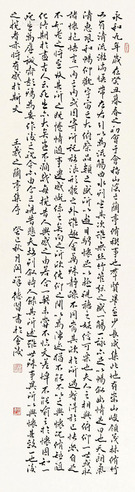 永和九年歲在癸丑暮春之初會于會稽山陰之蘭亭脩稧事也羣賢畢至少長咸集此地有崇山峻領茂林脩竹
又有清流激湍映帶左右引以為流觴曲水列坐其次雖無絲竹管弦之盛一觴一詠亦足以暢敘幽情是日也天朗氣
清惠風和暢仰觀宇宙之大俯察品類之盛所以遊目騁懷足以極視聽之娛信可樂也夫人之相與俯仰一世或取
諸懷抱悟言一室之內或因寄所託放浪形骸之外雖趣舍萬殊靜躁不同當其欣於所遇蹔得於己怏然自足
不知老之將至及其所之既惓情隨事遷感慨係之矣向之所欣俛仰之閒以為陳迹猶不能不以之興懷況脩短隨
化終期於盡古人云死生亦大矣豈不痛哉每攬昔人興感之由若合一契未嘗不臨文嗟悼不能喻之於懷固知一
死生為虛誕齊彭殤為妄作後之視今亦由今之視昔悲夫故列敘時人錄其所述雖世殊事異所以興懷其致一也後
之攬者亦將有感於斯文
王羲之蘭亭集序 癸巳秋月 書於金陵